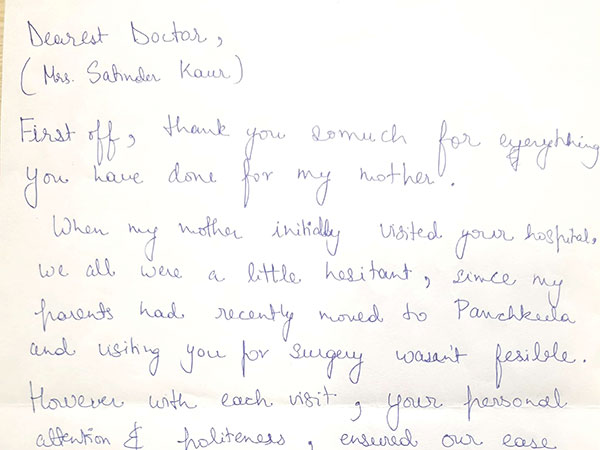 Dearest Doctor,
(Mrs. Satinder Kaur)
First off, thank you somuch for everything
you have done for my mother.
When my mother initially visited your hospital,
we all were a little hesitant, since my
parents had recently moved to Panchkula
and visiting you for surgery wasn't fesible.
However with each visit, your personal
attention & politeness, ensured our ease